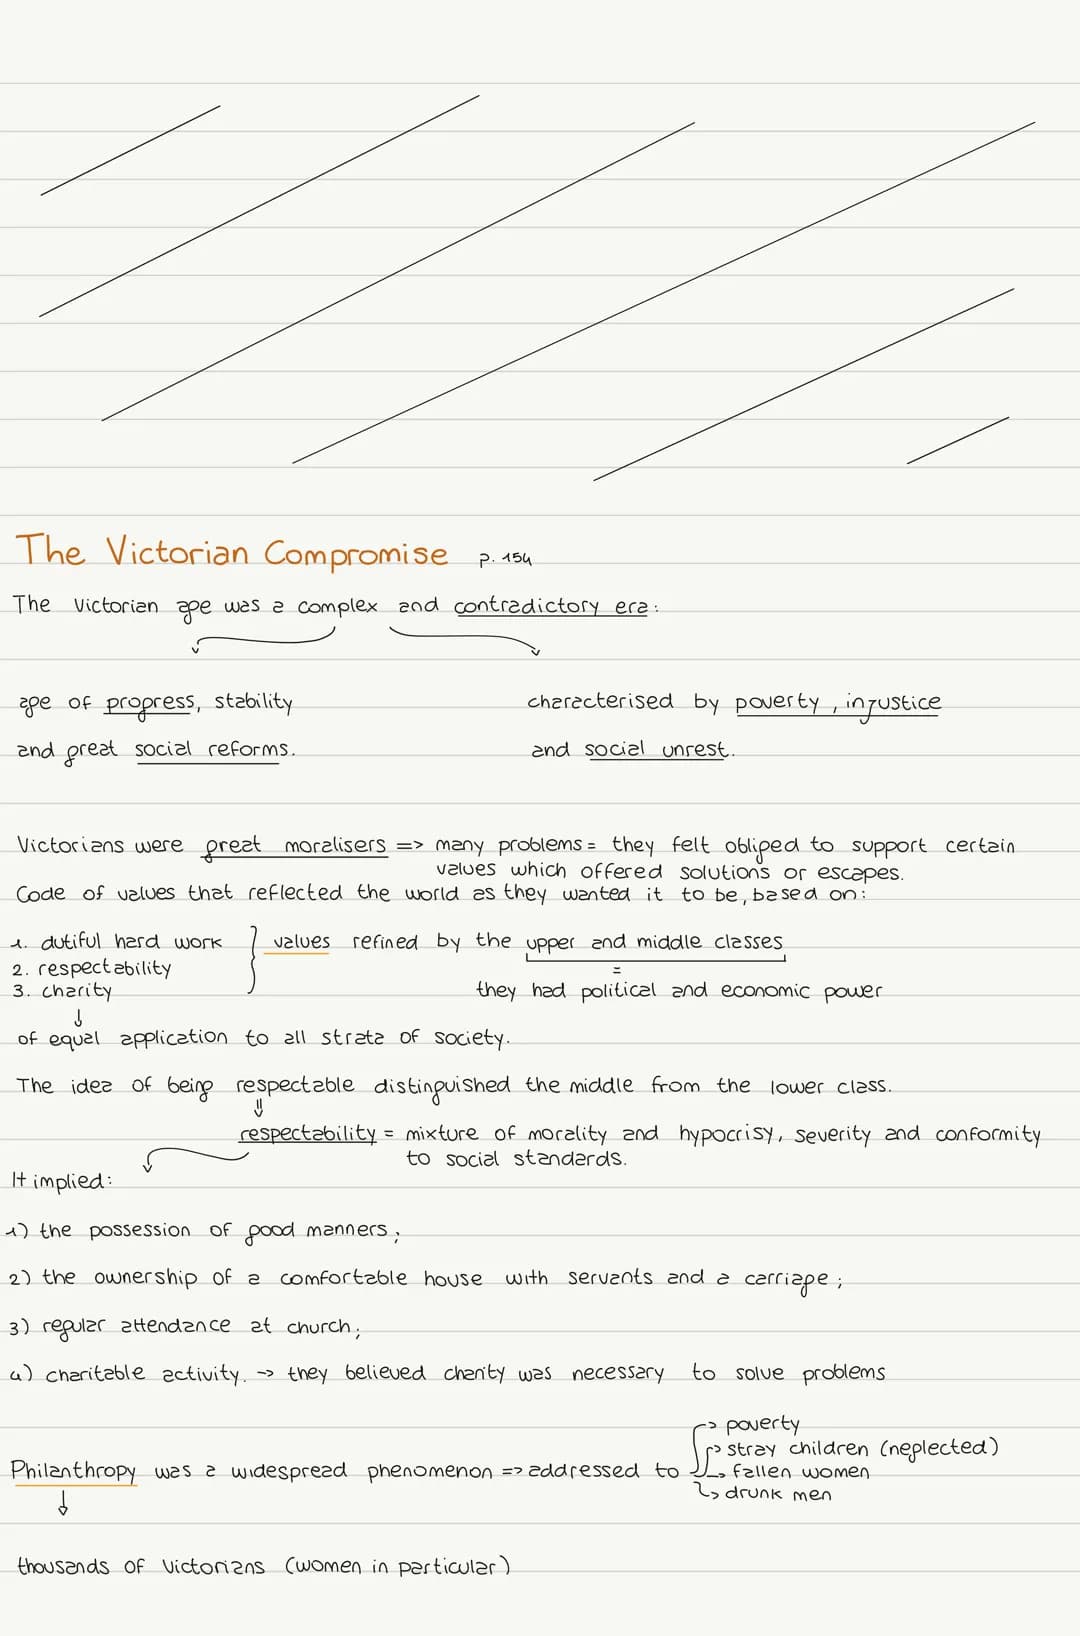 The Victorian Compromise p. 154
The Victorian age was a complex and contradictory era:
age of progress, stability
and great social reforms.
characterised by poverty, injustice
and social unrest.
Victorians were great moralisers => many problems = they felt obliged to support certain
values which offered solutions or escapes.
Code of values that reflected the world as they wanted it to be, based on:
1. dutiful hard work
2. respectability
3. charity
values refined by the upper and middle classes
=
they had political and economic power
of equal application to all strata of society.
The idea of being respectable distinguished the middle from the lower class.
respectability = mixture of morality and hypocrisy, severity and conformity
to social standards.
It implied:
1) the possession of good manners;
2) the ownership of a comfortable house with servants and a carriage;
3) regular attendance at church;
4) charitable activity. -> they believed charity was necessary to solve problems
Philanthropy was a widespread phenomenon => addressed to
-> poverty
-> stray children (neglected)
-> fallen women
-> drunk men
thousands of Victorians (women in particular)